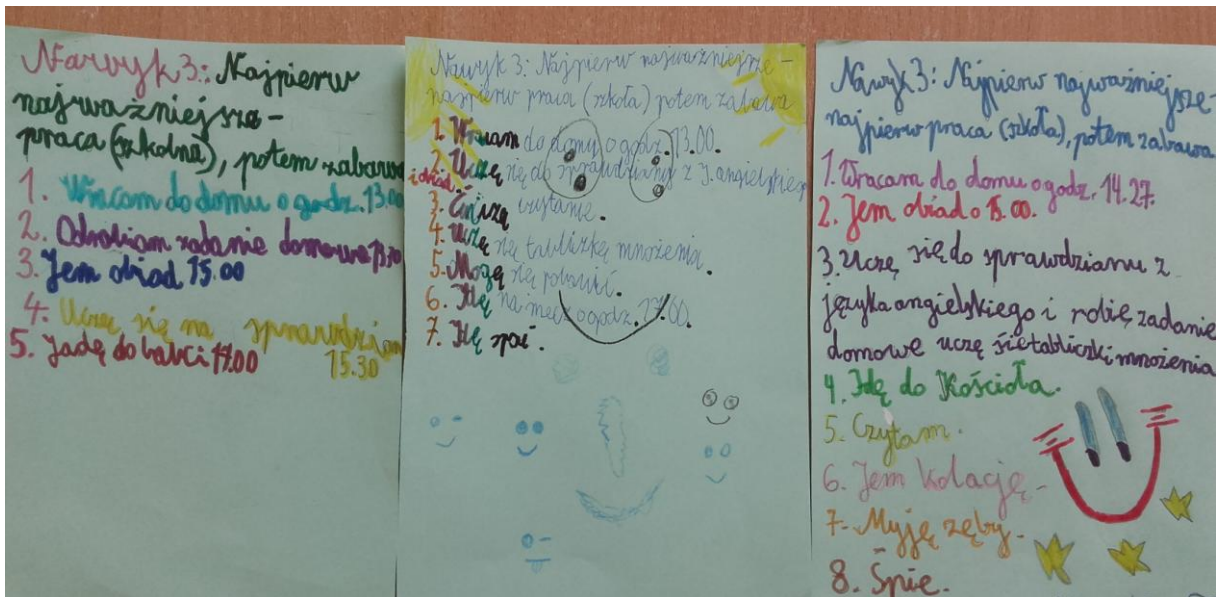 Nawyk 3: Najpierw
najważniejsze -
praca (szkolna), potem zabawa
1. Wracam do domu o godz. 13.00
2. Odrabiam zadanie domowe 13.30
3. Jem obiad 15.00
4. Uczę się na sprawdzian
15.30
5. Jadę do babci 17.00
Nawyk 3: Najpierw najważniejsze -
najpierw praca (szkoła) potem zabawa
1. Wracam do domu o godz. 13.00.
2. Uczę się do sprawdzianu z j. angielskiego
i obiad
3. Ćwiczę czytanie.
4. Uczę się tabliczkę mnożenia.
5. Mogę się pobawić.
6. Idę na mecz o godz. 17.00.
7. Idę spać.
Nawyk 3: Najpierw najważniejsze -
najpierw praca (szkoła), potem zabawa
1. Wracam do domu o godz. 14.27.
2. Jem obiad o 15.00.
3. Uczę się do sprawdzianu z
języka angielskiego i robię zadanie
domowe uczę się tabliczki mnożenia
4. Idę do Kościoła.
5. Czytam.
6. Jem kolację.
7. Myję zęby.
8. Śpię.